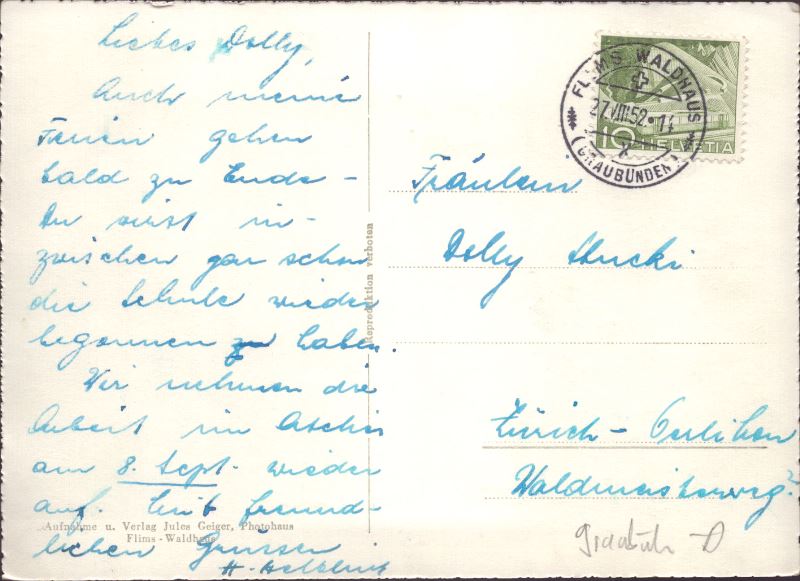 Liebes Dolly,
Auch meine
Ferien gehen
bald zu Ende –
Du wirst in-
zwischen gar schon
die Schule wieder
begonnen zu haben.
Wir nehmen die
Arbeit im Atelier
am 8. Sept. wieder
auf. Mit freund-
lichen Grüssen
H.
Aufnahme u. Verlag Jules Geiger, Photohaus
Flims - Waldhaus
Reproduktion verboten
FLIMS WALDHAUS
27.VIII.52.-14
X
(GRAUBÜNDEN)
10 HELVETIA
Fräulein
Dolly Stucki
Zürich – Oerlikon
Waldmeisterweg?